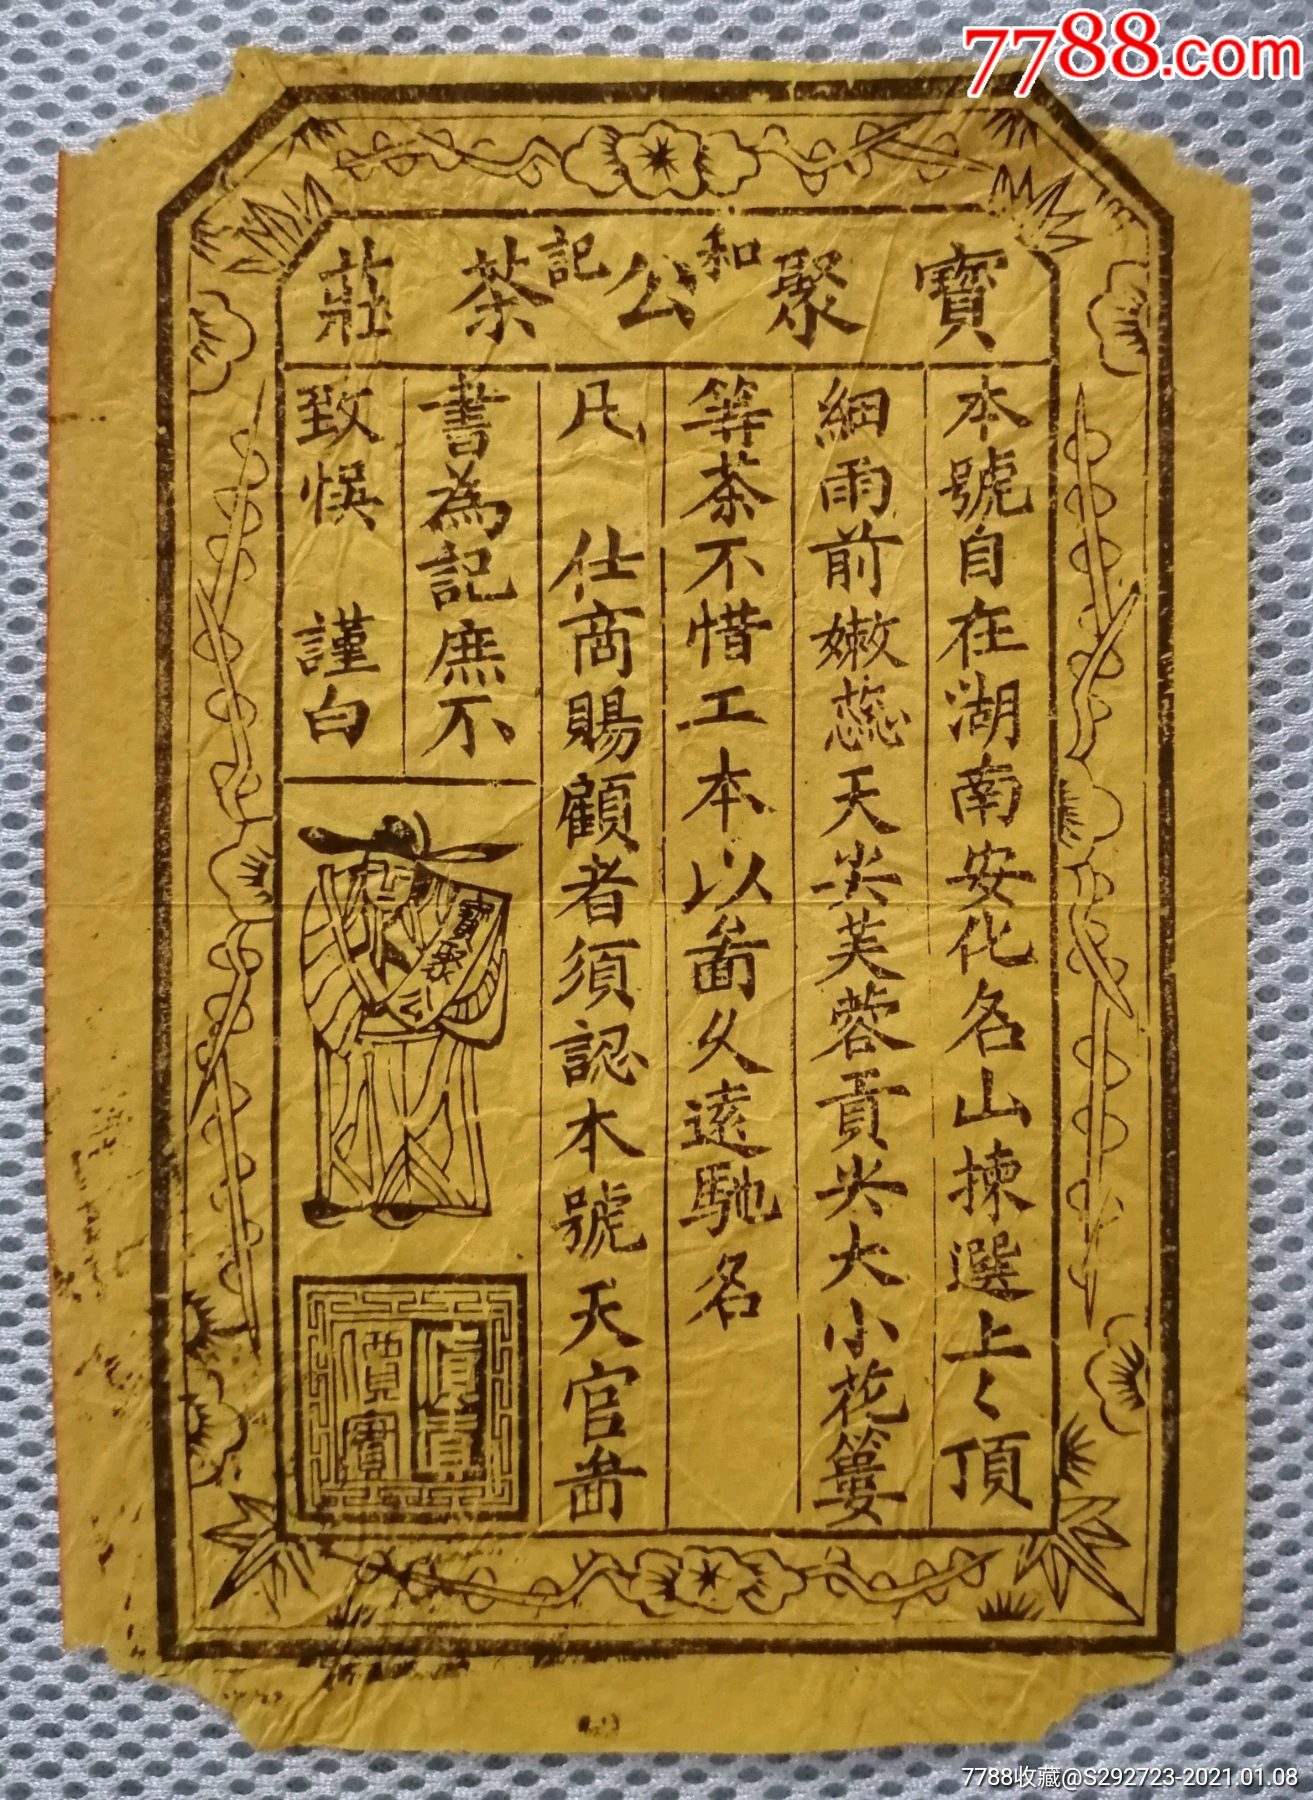 7788.com
寶聚和公記茶莊
本號自在湖南安化名山揀選上〻頂
細雨前嫩蕊天尖芙蓉貢尖大小花簍
等茶不惜工本以啚久遠馳名
凡 仕商賜顧者須認本號天官啚
書為記庶不
致悞 謹白
寶聚公
貨真
價實
7788收藏@S292723-2021.01.08